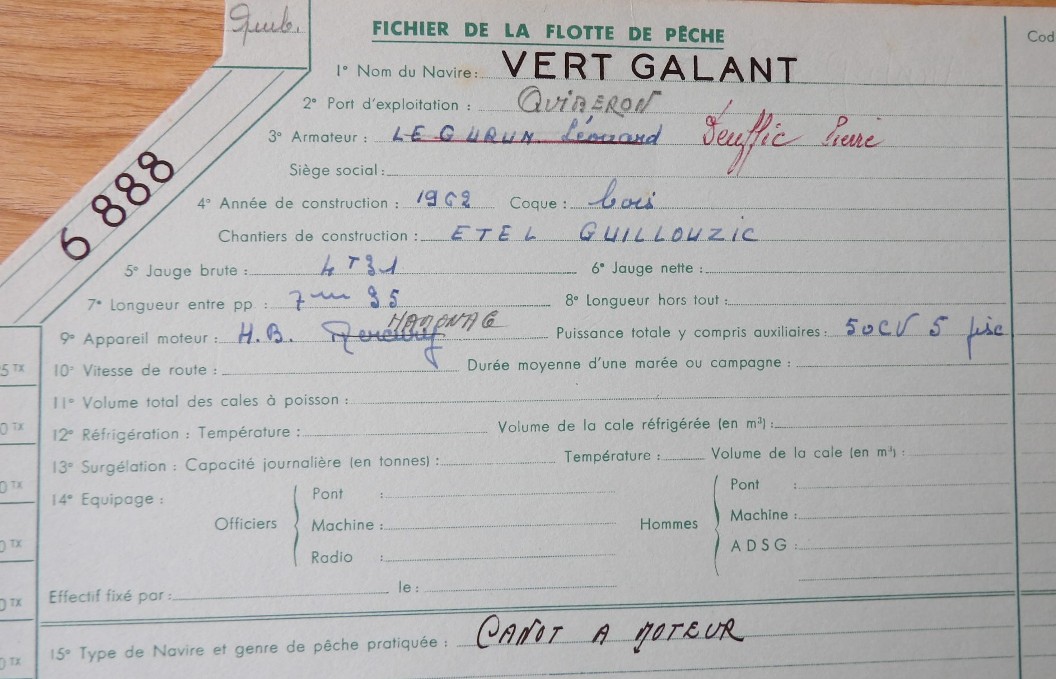 Quib.
FICHIER DE LA FLOTTE DE PÊCHE
Cod
1° Nom du Navire : VERT GALANT
2° Port d'exploitation : QUIBERON
6 888
3° Armateur : LE GURUN Léonard Deuffic Pierre
Siège social :
4° Année de construction : 1962 Coque : bois
Chantiers de construction : ETEL GUILLOUZIC
5° Jauge brute : 4 T 31 6° Jauge nette :
7° Longueur entre pp. : 7m 35 8° Longueur hors tout :
9° Appareil moteur : H.B. Mercury Puissance totale y compris auxiliaires : 50CV 5 fisc
5 TX
10° Vitesse de route : Durée moyenne d'une marée ou campagne :
11° Volume total des cales à poisson :
0 TX
12° Réfrigération : Température : Volume de la cale réfrigérée (en m³) :
13° Surgélation : Capacité journalière (en tonnes) : Température : Volume de la cale (en m³) :
0 TX
14° Equipage :
Officiers
Pont :
Machine :
Radio :
Hommes
Pont :
Machine :
A D S G :
0 TX
Effectif fixé par : le :
0 TX
15° Type de Navire et genre de pêche pratiquée : CANOT A MOTEUR
0 TX